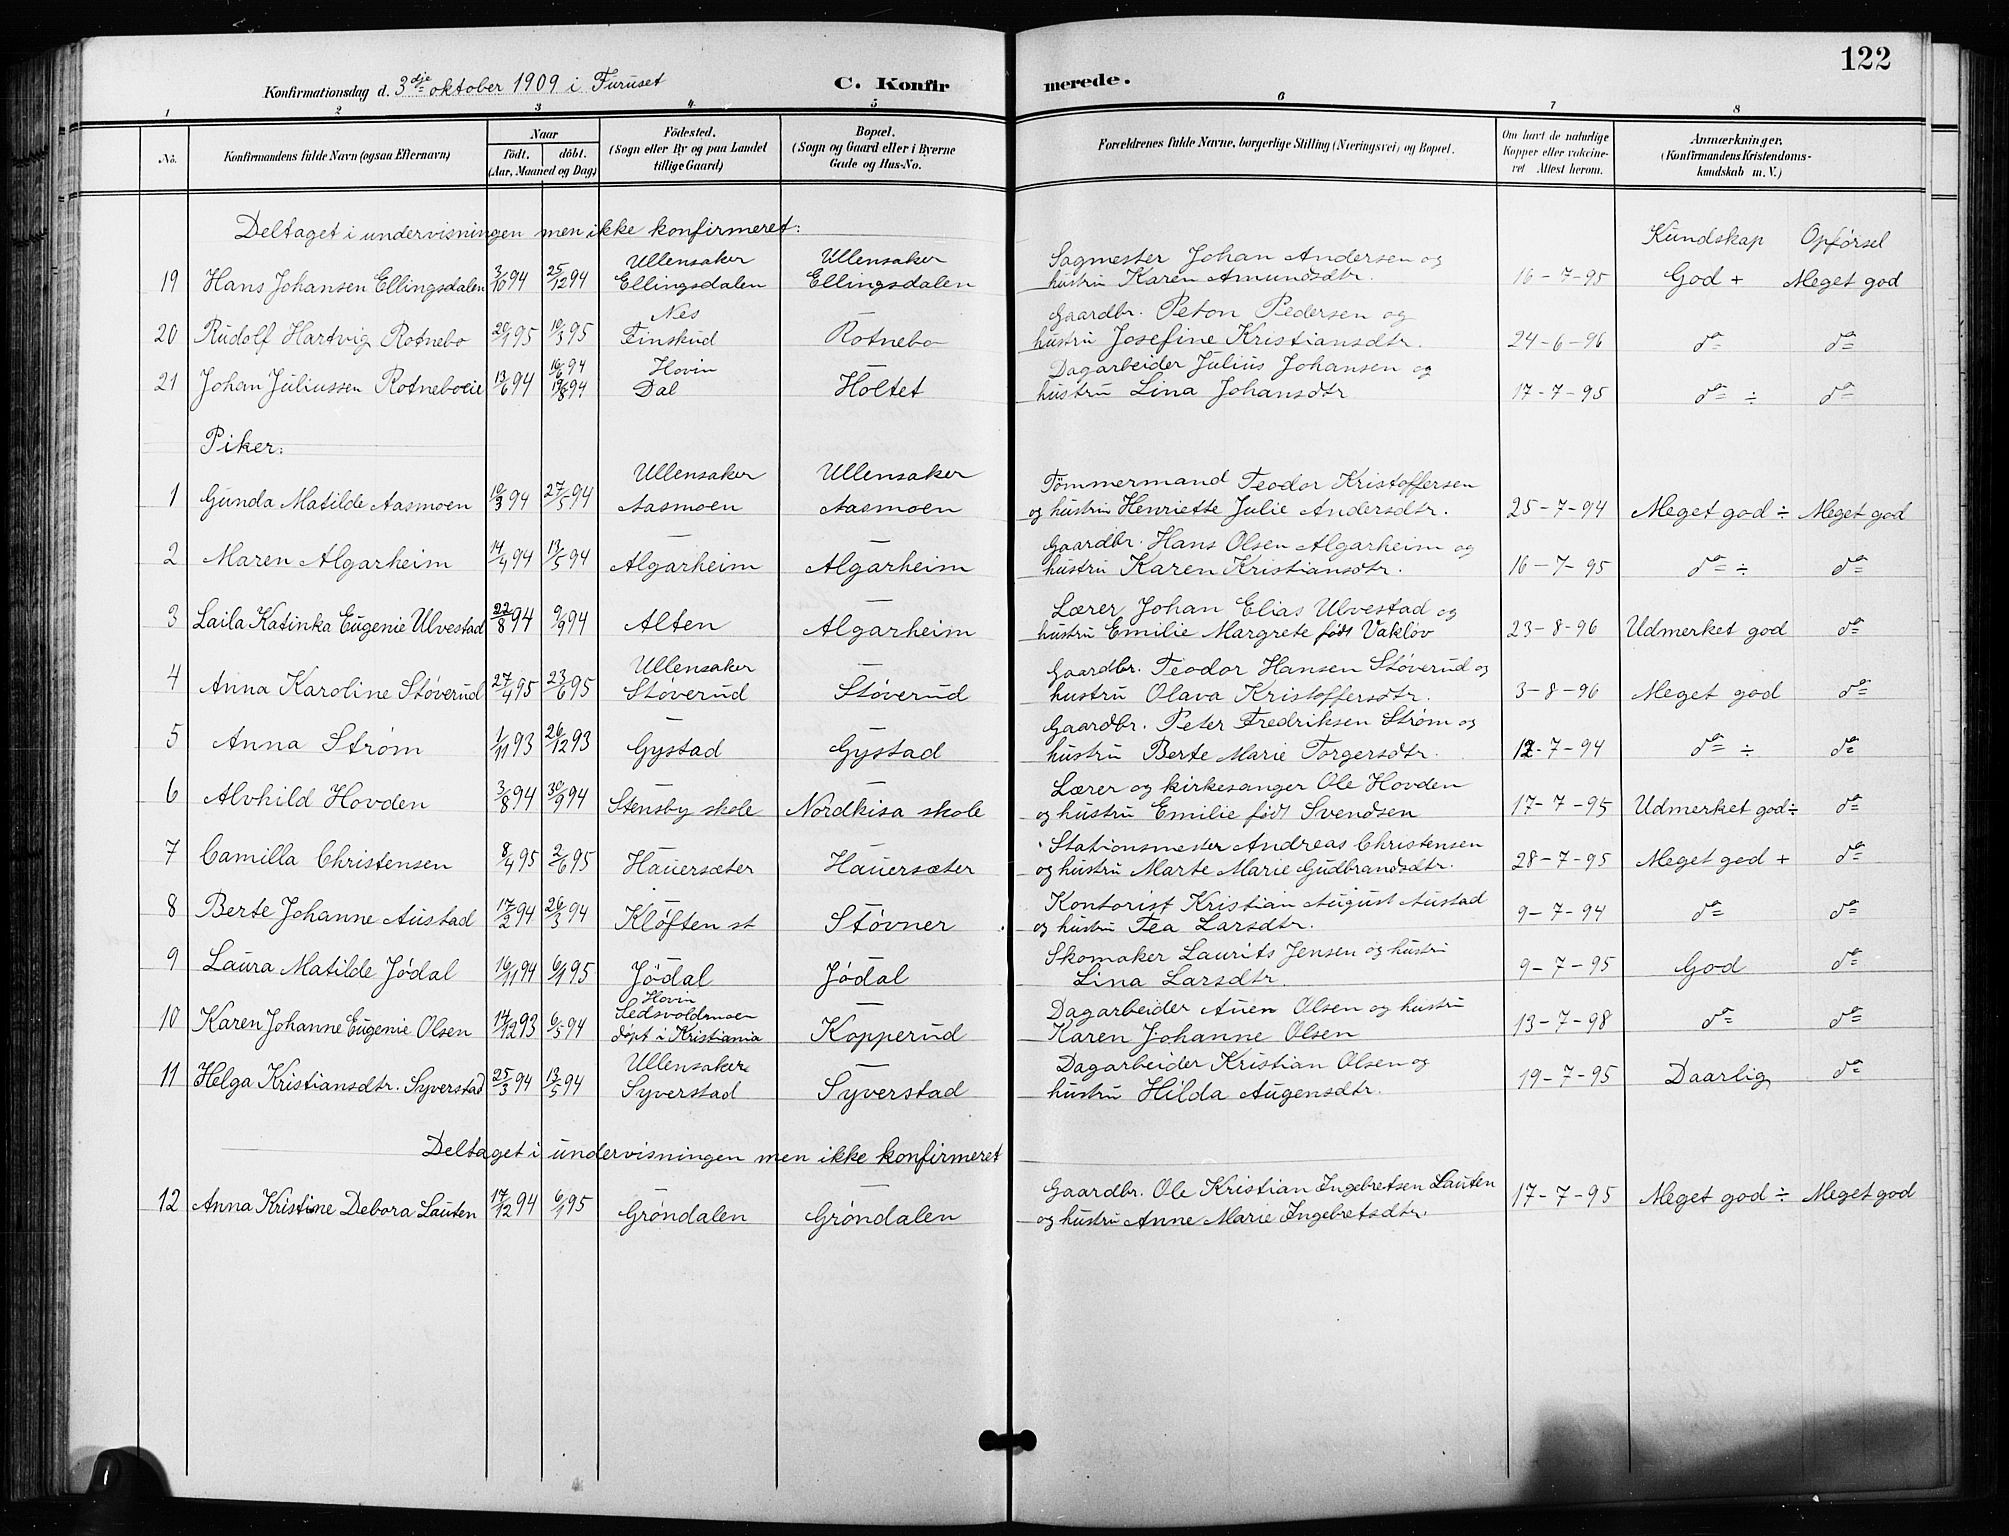 122
Konfirmationsdag d. 3dje oktober 1909 i Furuset C. Konfirmerede.
1 2 3 4 5 6 7 8
No. Konfirmandens fulde Navn (ogsaa Efternavn) Naar Födt. döbt. (Aar, Maaned og Dag) Födested. (Sogn eller By og paa Landet tillige Gaard) Bopæl. (Sogn og Gaard eller i Byerne Gade og Hus-No. Forældrenes fulde Navne, borgerlige Stilling (Næringsvei) og Bopæl. Om havt de naturlige Kopper eller vakcineret Attest herom. Anmærkninger, (Konfirmandens Kristendomskundskab m. V.)
Deltaget i undervisningen men ikke konfirmeret: Kundskap Opførsel
Ullensaker Ullensaker Sagmester Johan Andersen og
19 Hans Johansen Ellingsdalen 3/10 94 25/12 94 Ellingsdalen Ellingsdalen hustru Karen Amundsdtr. 16-7-95 God + Meget god
Nes — Gaardbr. Peton Pedersen og
20 Rudolf Hartvig Rotnebo 20/1 95 10/3 95 Finskud Rotnebo hustru Josefine Kristiansdtr. 24-6-96 do do
16/6 94 Hovin — Dagarbeider Julius Johansen og
21 Johan Juliussen Rotneboeie 13/6 94 19/8 94 Dal Holtet hustru Lina Johansdtr 17-7-95 do ÷ do
Piker:
Ullensaker Ullensaker Tømmermand Teodor Kristoffersen
1 Gunda Matilde Aasmoen 10/3 94 27/5 94 Aasmoen Aasmoen og hustru Henriette Julie Andersdtr. 25-7-94 Meget god ÷ Meget god
— — Gaardbr. Hans Olsen Algarheim og
2 Maren Algarheim 14/4 94 13/5 94 Algarheim Algarheim hustru Karen Kristiansdtr. 16-7-95 do ÷ do
— Lærer Johan Elias Ulvestad og
3 Laila Katinka Eugenie Ulvestad 22/8 94 9/9 94 Alten Algarheim hustru Emilie Margrete født Vakløv 23-8-96 Udmerket god do
Ullensaker — Gaardbr. Teodor Hansen Støverud og
4 Anna Karoline Støverud 27/4 95 23/6 95 Støverud Støverud hustru Olava Kristoffersdtr. 3-8-96 Meget god do
— — Gaardbr. Peter Fredriksen Strøm og
5 Anna Strøm 1/11 93 26/12 93 Gystad Gystad hustru Berte Marie Torgersdtr. 12-7-94 do ÷ do
— — Lærer og kirkesanger Ole Hovden
6 Alvhild Hovden 3/8 94 30/9 94 Stensby skole Nordkisa skole og hustru Emilie født Svendsen 17-7-95 Udmerket god ÷ do
— — Stationsmester Andreas Christensen
7 Camilla Christensen 8/4 95 2/6 95 Hauersæter Hauersæter og hustru Marte Marie Gudbrandsdtr. 28-7-95 Meget god + do
— — Kontorist Kristian August Austad
8 Berte Johanne Austad 17/2 94 26/3 94 Kløften st Støvner og hustru Tea Larsdtr. 9-7-94 do do
— — Skomaker Laurits Jensen og hustru
9 Laura Matilde Jødal 16/11 94 6/1 95 Jødal Jødal Lina Larsdtr. 9-7-95 God do
Hovin — Dagarbeider Auen Olsen og hustru
10 Karen Johanne Eugenie Olsen 14/12 93 6/5 94 Ledsvoldmoen døpt i Kristiania Kopperud Karen Johanne Olsen 13-7-98 do do
Ullensaker — Dagarbeider Kristian Olsen og
11 Helga Kristiansdtr. Syverstad 25/3 94 13/5 94 Syverstad Syverstad hustru Hilda Augensdtr. 19-7-95 Daarlig do
Deltaget i undervisningen men ikke konfirmeret
— — Gaardbr. Ole Kristian Ingebretsen Lauten
12 Anna Kristine Debora Lauten 17/12 94 6/1 95 Grøndalen Grøndalen og hustru Anne Marie Ingebretsdtr. 17-7-95 Meget god ÷ Meget god